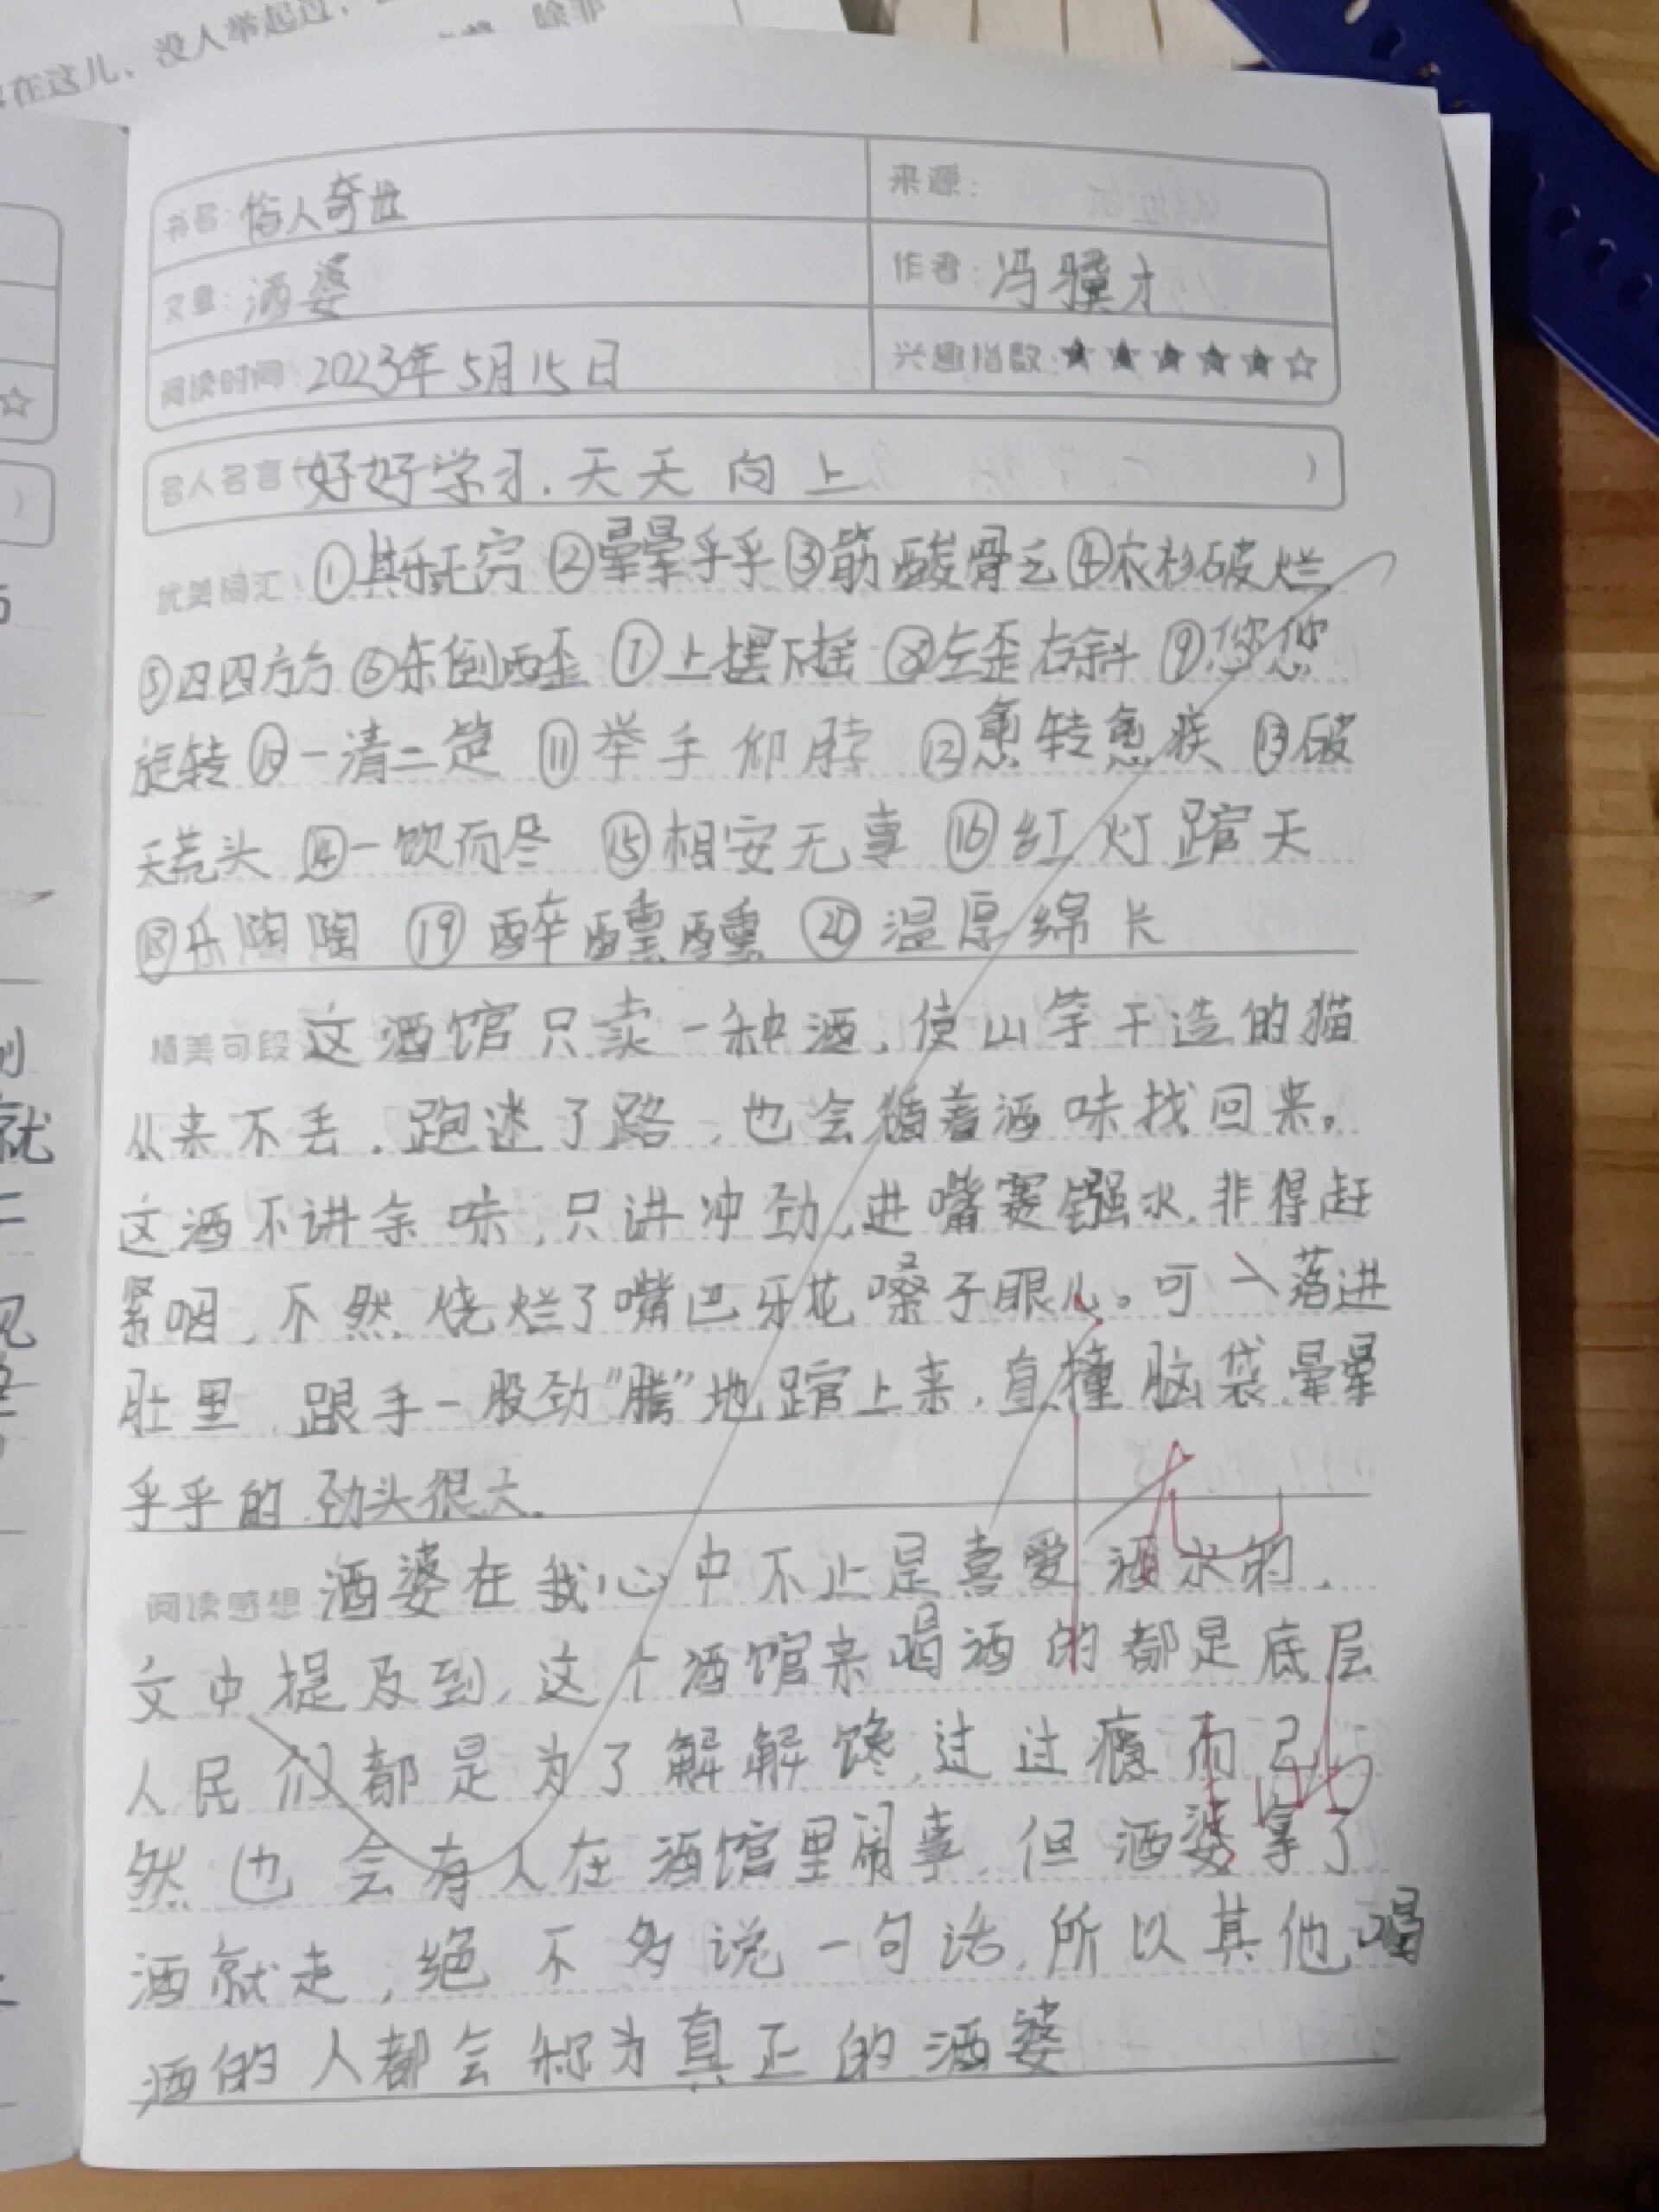 在这儿、说人举过过，
书名：俗人奇世
来源：
文章：酒婆
作者：冯骥才
阅读时间：2023年5月15日
兴趣指数：★★★★★☆
名人名言（好好学习.天天向上）
优美词汇：①其乐无穷②晕晕乎乎③筋酸骨乏④衣衫破烂
⑤四四方方⑥东倒西歪⑦上摆下摇⑧左歪右斜⑨您您
旋转⑩一清二楚⑪举手仰脖⑫愈转愈疾⑬破
天荒头⑭一饮而尽⑮相安无事⑯红灯蹿天
⑱乐陶陶⑲醉醺醺⑳温厚绵长
精美句段 这酒馆只卖一种酒，使山芋干造的猫
从来不丢.跑迷了路，也会循着酒味找回来。
这酒不讲余味，只讲冲劲，进嘴赛镪水.非得赶
紧咽，不然烧烂了嘴巴牙花嗓子眼儿。可一落进
肚里.跟手一股劲“腾”地蹿上来.直撞脑袋.晕晕
乎乎的.劲头很大.
阅读感想 酒婆在我心中不止是喜爱酒水的.
文中提及到，这个酒馆来喝酒的都是底层
人民们都是为了解解馋，过过瘾而已
然也会有人在酒馆里闹事.但酒婆拿了
酒就走，绝不多说一句话.所以其他喝
酒的人都会称为真正的酒婆